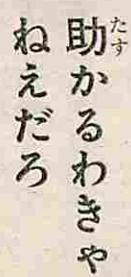 助かるわきゃ
ねえだろ